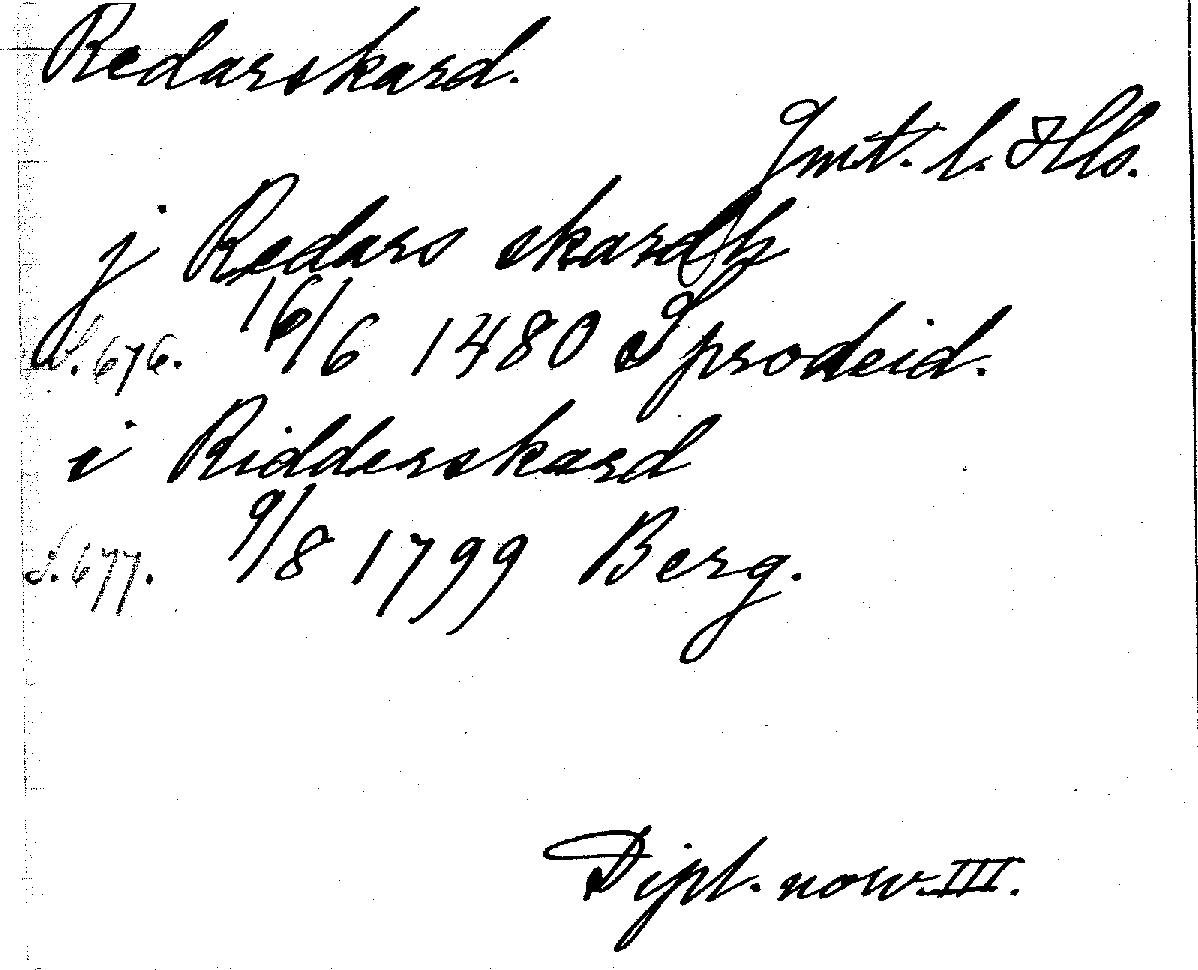 Redarskard.
Jmt. l. Hls.
j Redars skardh
S. 676. 16/6 1480 Sprodeid.
i Ridderskard
S. 677. 9/8 1799 Berg.
Dipl. norv. III.